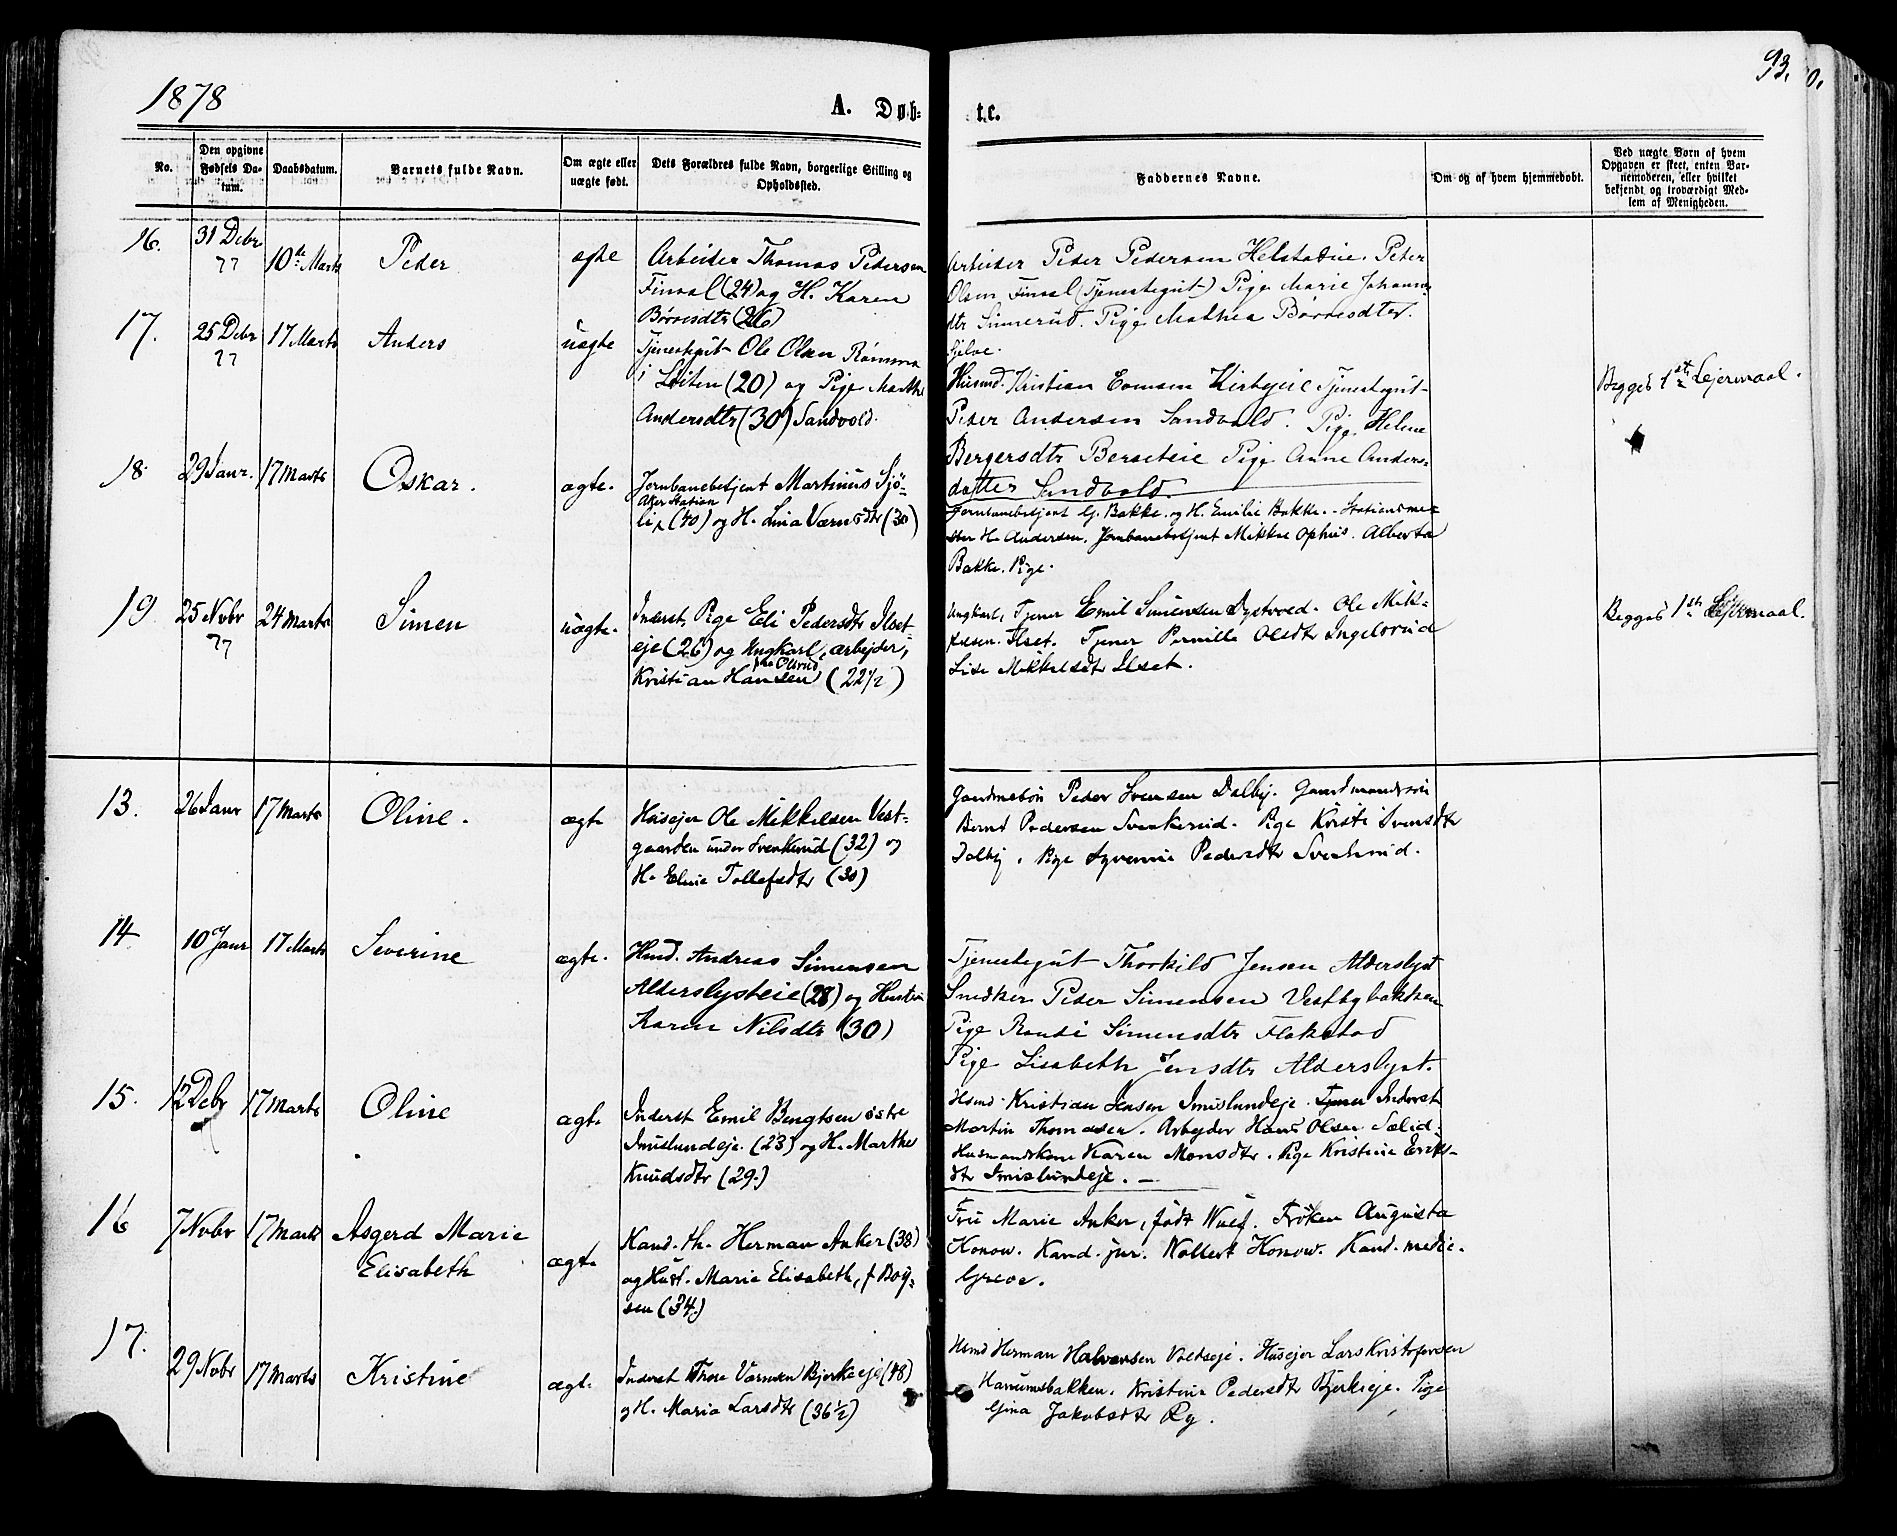 1878
A. Døb-
te.
93.
No.
Den opgivne Fødsels Da-tum.
Daabsdatum.
Barnets fulde Navn.
Om ægte eller uægte født.
Dets Forældres fulde Navn, borgerlige Stilling og Opholdssted.
Faddernes Navne.
Om og af hvem hjemmedøbt.
Ved uægte Børn af hvem Opgaven er skeet, enten Bar-nemoderen, eller hvilket bekjendt og troværdigt Med-lem af Menigheden.
16.
31 Debr
77
10de Marts
Peder
ægte
Arbeider Thomas Pedersen
Finsal (24) og H. Karen
Børresdtr (26)
Arbeider Peder Pedersen Helstadeie. Peter
Olsen Finsal (Tjenestegut) Pige Marie Johanns
dtr Sinnerud. Pige Mathea Børresdter.
Sjelve.
17.
25 Debr
77
17 Marts
Anders
uægte
Tjenestegut Ole Olsen Rømma
i Løiten (20) og Pige Marthe
Andersdtr (30) Sandvold.
Husmd. Kristian Kirbyeie Tjenestegut
Peder Andersen Sandvold. Pige Helene
Bergersdtr Berseteie Pige Anne Anders-
datter Sandvold.
Begges 1ste Lejermaal.
18.
29 Janr.
17 Marts
Oskar.
ægte.
Jernbanebetjent Martinus Sjö-
Aker Station
li (40) og H. Lina Værnsdtr (30)
Jernbanebetjent G. Bakke. og H. Emilie Bakke. Stationsme-
ster H. Andersen. Jernbanebetjent Mikkel Ophus. Alberta
Bakke. Pige.
19.
25 Novbr
77
24 Marts
Simen
uægte.
Inderst, Pige Eli Pedersdtr Ilset-
eje (26) og Ungkarl, arbejder,
Kristian Hansen (22 1/2)
Ungkarl, Tjener Emil Simensen Dystvold. Ole Mik-
kelsen. Ilset. Tjener Pernille Olsdtr Ingelsrud
Lise Mikkelsdtr Ilset.
Begges 1ste Lejermaal.
13.
26 Janr
17 Marts
Oline.
ægte
Husejer Ole Mikkelsen Vest-
gaarden under Svenkerud (32) og
H. Eline Tollefsdtr (30)
Gaardmandssøn
Peder Svensen Dalby.
Bernt Pedersen Svenkerud. Pige Kristi Svensdtr
Dalby. Pige Pedersdtr Svenkerud.
14
10 Janr
17 Marts
Severine
ægte.
Hmd. Andreas Simensen
Alderslysteie (28) og Hustru
Karen Nilsdtr (30)
Tjenestegut Thorkild Jensen Alderslyst
Snedker Peder Simensen Vestbybakken
Pige Randi Simensdtr Flakstad
Pige Lisabeth Jensdtr Alderslyst.
15.
12 Debr
17 Marts
Oline
ægte
Inderst Emil Bengtsen østre
Imislundeje. (23) og H. Marthe
Knudsdtr (29.)
Hsmd. Kristian Jensen Imislundeje. Tjener Inderst
Martin Thomasen. Arbejder Hans Olsen Sælid.
Husmandskone Karen Monsdtr. Pige Kristine Eriks-
dtr Imislundeje. —
16
7 Novbr
17 Marts
Asgerd Marie
Elisabeth
ægte
Kand. th. Herman Anker (38)
og Hust. Marie Elisabeth, f Boy-
sen (34.)
Fru Marie Anker, født Wulf. Frøken Augusta
Konow. Kand. jur. Wollert Konow. Kand. medic.
Greve.
17.
29 Novbr
17 Marts
Kristine
ægte
Inderst Thore Værnsen Bjerkeeje (48)
og H. Maria Larsdtr (36 1/2)
Hsmd Herman Halvorsen Voldseje. Husejer Lars Kristofersen
Hanumsbakken. Kristine Pedersdtr Bjerkeje. Pige
Gina Jakobsdtr Ry.